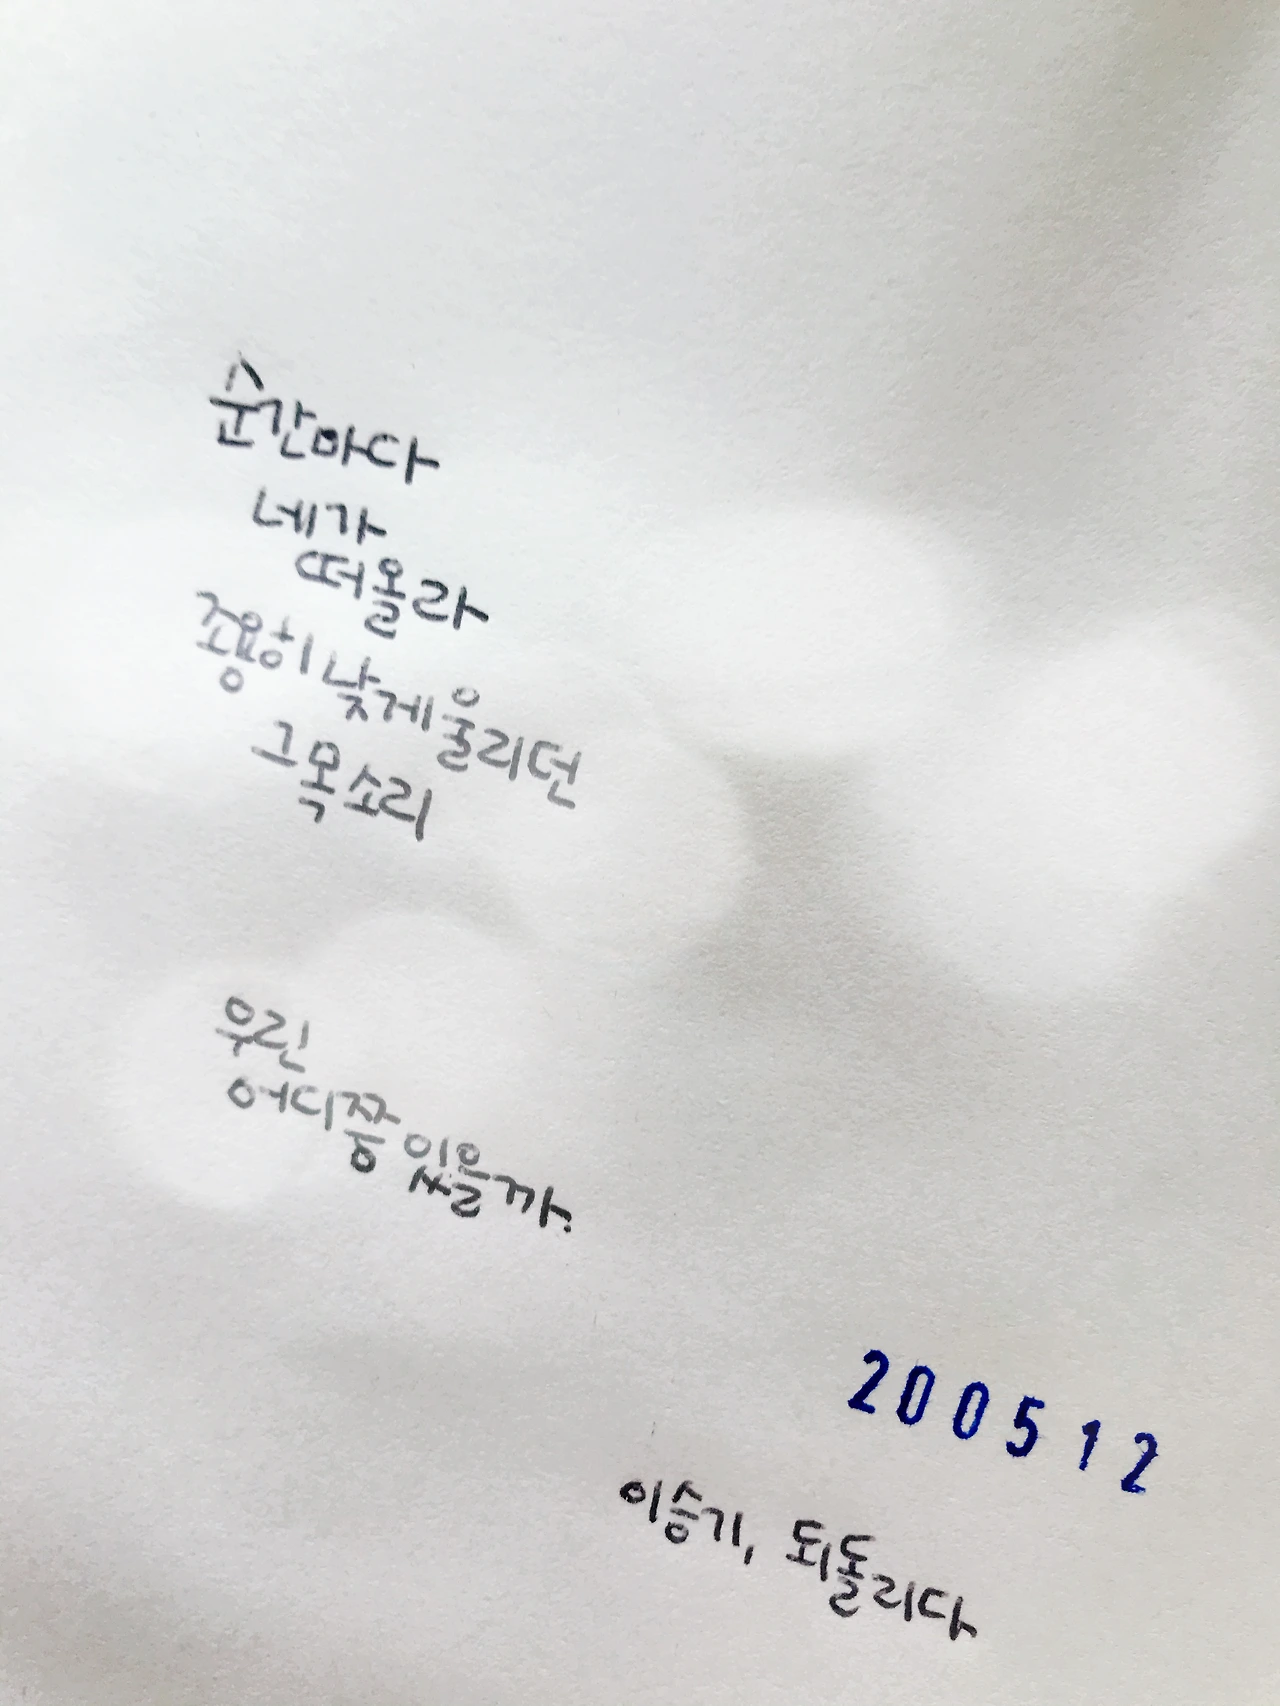 순간마다
네가
떠올라
조용히 낮게 울리던
그 목소리
우린
어디쯤 있을까.
200512
이승기, 되돌리다